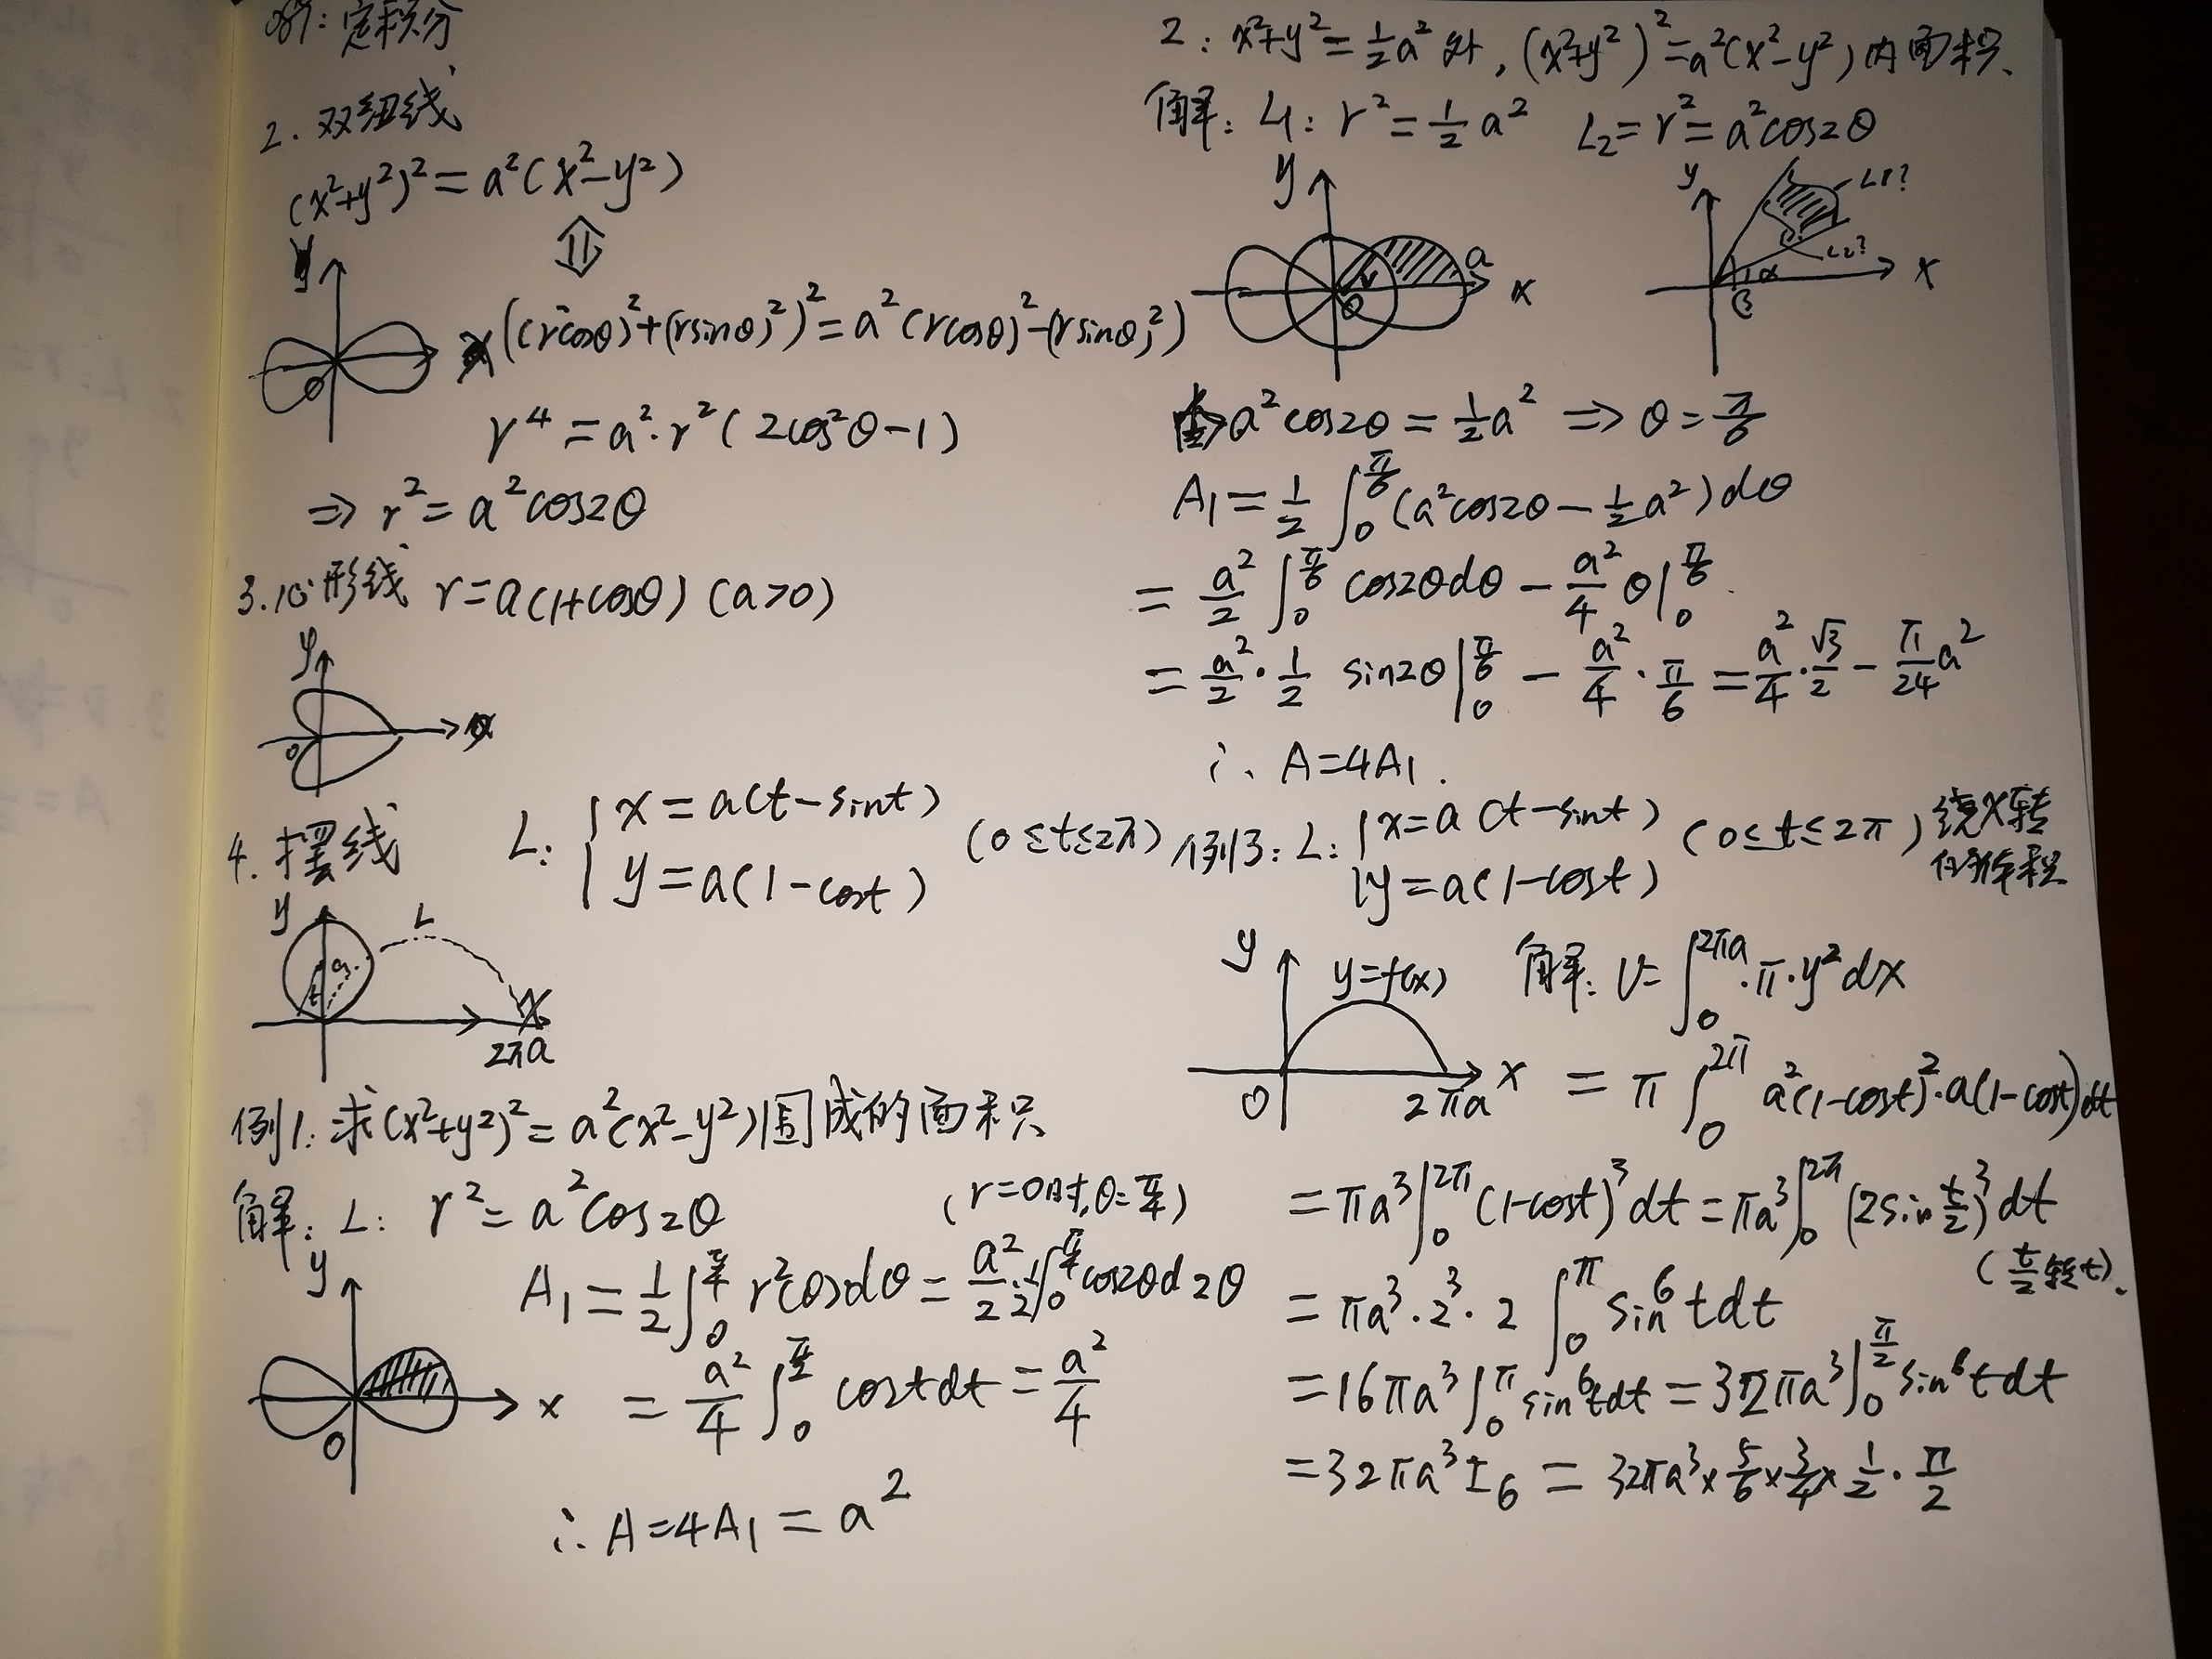 087: 定积分
2. 双纽线
(x²+y²)² = a²(x²-y²)
⇕
y
((rcosθ)²+(rsinθ)²)² = a²(rcosθ)²-(rsinθ)²)
O
r⁴ = a²·r²(2cos²θ-1)
⇒ r² = a²cos2θ
3. 心形线 r=a(1+cosθ) (a>0)
y
0
x
4. 摆线 L: { x=a(t-sint) y=a(1-cost) (0≤t≤2π)
y L
a
t
x
2πa
例1: 求(x²+y²)²=a²(x²-y²)围成的面积
解: L: r²=a²cos2θ (r=0时,θ=π/4)
A₁ = 1/2 ∫₀^{π/4} r²(θ)dθ = a²/2·1/2 ∫₀^{π/4} cos2θd2θ
y
O x
= a²/4 ∫₀^{π/2} costdt = a²/4
∴ A=4A₁ = a²
2: x²+y²=1/2a² 外, (x²+y²)²=a²(x²-y²)内面积.
解: L1: r²=1/2a² L₂= r²=a²cos2θ
y a x
y L1? L2? α β x
a²cos2θ = 1/2a² ⇒ θ=π/6
A₁ = 1/2 ∫₀^{π/6} (a²cos2θ - 1/2a²)dθ
= a²/2 ∫₀^{π/6} cos2θdθ - a²/4 θ|₀^{π/6}
= a²/2·1/2 sin2θ|₀^{π/6} - a²/4·π/6 = a²/4·√3/2 - π/24 a²
∴ A=4A₁.
例3: L: { x=a(t-sint) y=a(1-cost) (0≤t≤2π) 绕X转的体积
y y=f(x)
O 2πa x
解: V= ∫₀^{2πa}·π·y²dx
= π ∫₀^{2π} a²(1-cost)²·a(1-cost)dt
= πa³ ∫₀^{2π} (1-cost)³dt = πa³ ∫₀^{2π} (2sin t/2)³dt
(t/2转t).
= πa³·2³·2 ∫₀^π sin⁶tdt
= 16πa³ ∫₀^π sin⁶tdt = 32πa³ ∫₀^{π/2} sin⁶tdt
= 32πa³I₆ = 32πa³×5/6×3/4×1/2·π/2